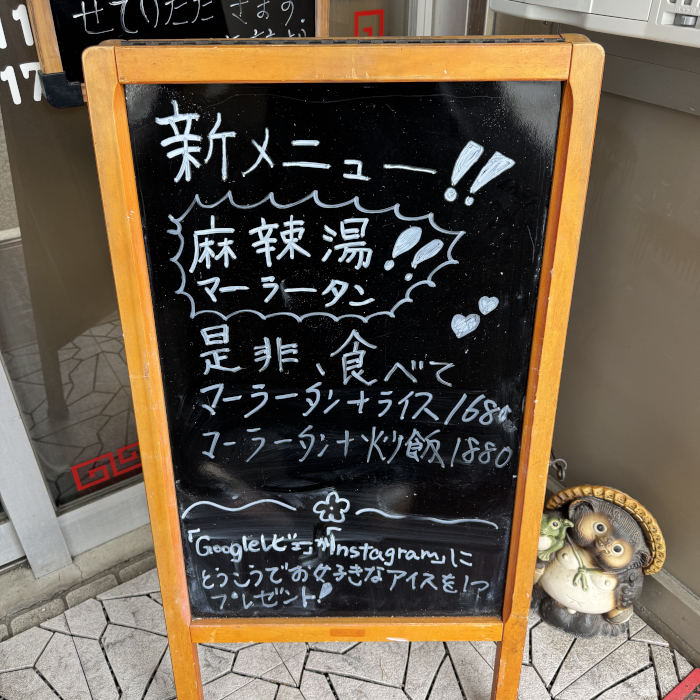 せてりただきます。
11
17
新メニュー!!
麻辣湯!!
マーラータン
是非、食べて
マーラータン+ライス1680
マーラータン+炒飯1880
「Googleレビュー」か「Instagram」に
とうこうでお好きなアイスを1つ
プレゼント!